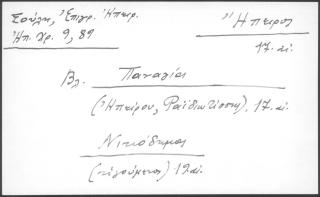 Σούλη, Ἐπιγρ. Ἠπείρ.
Ἠπ. Χρ. 9, 89
Ἤπειρος
17. αἰ.
Βλ. Παναγίας
(Ἠπείρου, Ραϊδιωτίσσης), 17. αἰ.
Νικόδημος
(ἡγούμενος) 19 αἰ.